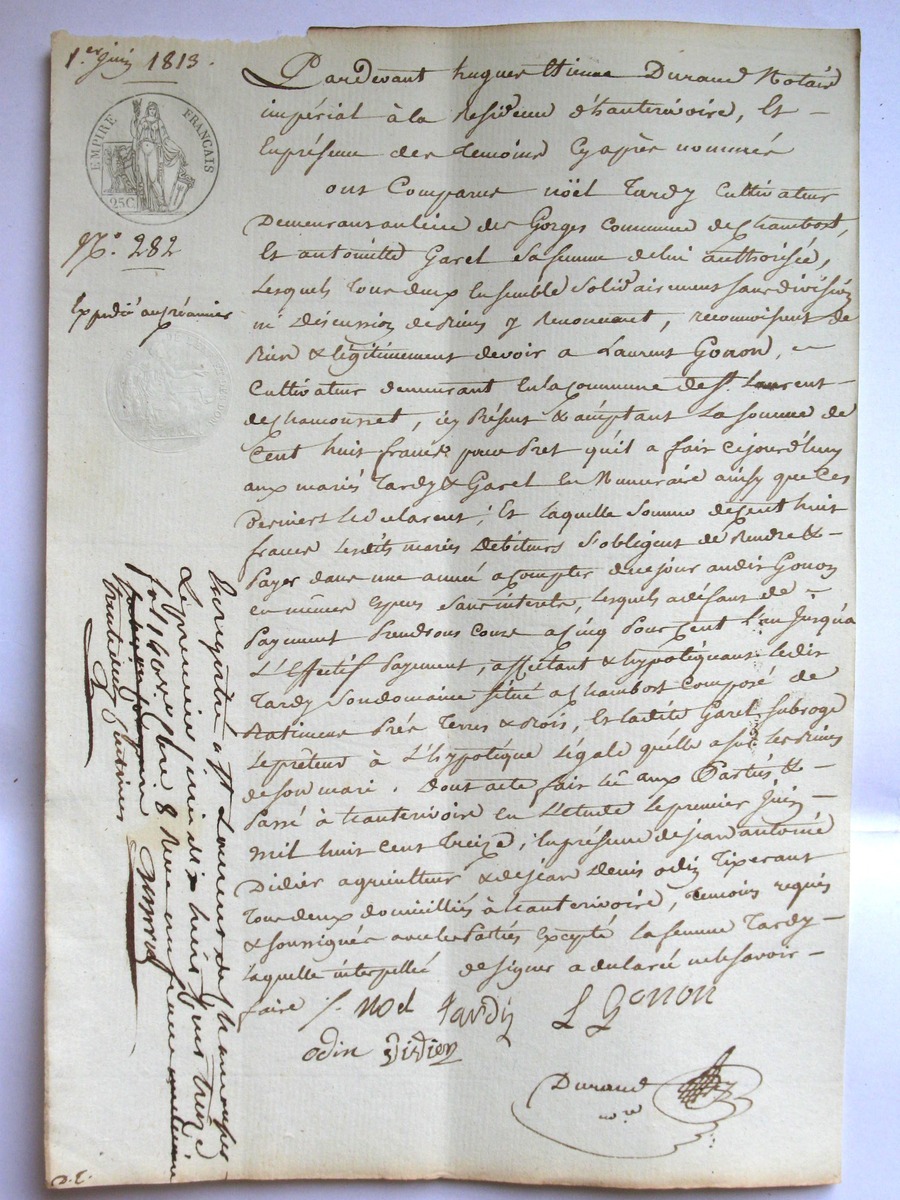 1.er juin 1813.
EMPIRE FRANÇAIS
25C.
N.° 282
Expédié au premier
Pardevant hugues Etienne Durand Notaire
impérial à la Residence d'hauterivoire, Et
En présence des temoins Cy après nommés
ont Comparus noël Tardy Cultivateur
Demeurant au lieu des Gorges Commune de Chambost,
Et antoinette Garel sa femme de lui authorisée,
Lesquels tous deux Ensemble Solidairement sans division
ni Discussion de Biens y Renonceant, reconnoisent de
Bien & légitimement devoir a Laurent Gonon,
Cultivateur demeurant En la Commune de St. Laurent
de Chamousset, icy Présent & acceptant La somme de
Cent huit francs pour Pret qu'il a fait cejourd'huy
aux mariés Tardy & Garel En Numéraire ainsy que Ces
Derniers Le déclarent; Et laquelle Somme de Cent huit
francs Lesdits mariés Débiteurs S'obligent de Rendre &
Payer dans une année a Compter de ce jour audit Gonon
en mêmes Espèces Sans interets, lesquels a défaut de
Payement Prendront Cours a Cinq Pour Cent L'an Jusqu'a
L'Effectif Payement, affectant & hypotéquant Ledit
Tardy Son domaine situé a Chambost Composé de
Batiments Prés Terres & Bois, Et ladite Garel subroge
Le prêteur à L'hypotéque Légale qu'elle a sur Les Biens
de son mari. Dont acte fait lu aux Parties &
Passé à hauterivoire En L'Etude Le premier Juin
mil huit Cent Treize; En présence de jean antoine
Didier agriculteur & de jean Denis odin Tixerant
Tous deux domiciliés à hauterivoire, temoins requis
& soussignés avec les Parties Excepté la femme Tardy
laquelle interpellée de signer a declaré ne le savoir
faire ./. noel tardy L Gonon
odin Didier
Durand
nre
Enregistré a St Laurent de Chamousset
Le premier juin dix huit cent treize
fol 140 Vo Case 8 Reçu un franc
trente deux Centimes